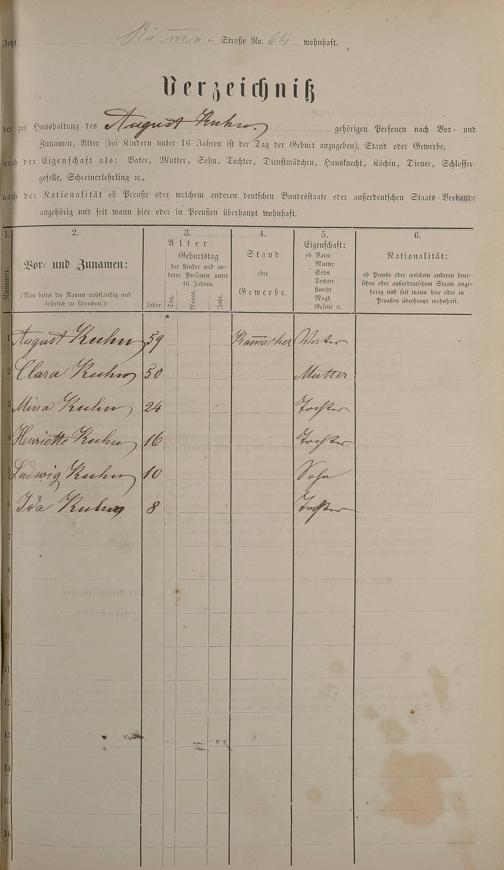 Jetzt Straße No. 64 wohnhaft.
Verzeichniß
der zur Haushaltung des August Kuhn gehörigen Personen nach Vor- und
Zunamen, Alter (bei Kindern unter 16 Jahren ist der Tag der Geburt anzugeben), Stand oder Gewerbe,
nach der Eigenschaft als: Vater, Mutter, Sohn, Tochter, Dienstmädchen, Hausknecht, Köchin, Diener, Schlosser-
geselle, Schreinerlehrling ꝛc.,
nach der Nationalität ob Preuße oder welchem anderen deutschen Bundesstaate oder außerdeutschen Staats-Verbande
angehörig und seit wann hier oder in Preußen überhaupt wohnhaft.
1.
Nummer.
2.
Vor- und Zunamen:
(Man bittet die Namen vollständig und
leserlich zu schreiben.)
3.
Alter
Geburtstag
der Kinder und an-
derer Personen unter
16 Jahren.
Jahre. Tag. Monat. Jahr.
4.
Stand
oder
Gewerbe.
5.
Eigenschaft:
ob Vater
Mutter
Sohn
Tochter
Knecht
Magd
Geselle ꝛc.
6.
Nationalität:
ob Preuße oder welchem anderen deut-
schen oder außerdeutschen Staate ange-
hörig und seit wann hier oder in
Preußen überhaupt wohnhaft.
1 August Kuhn 59 Vater
2 Clara Kuhn 50 Mutter
3 Mina Kuhn 24 Tochter
4 Henriette Kuhn 16 Tochter
5 Ludwig Kuhn 10 Sohn
6 Ida Kuhn 8 Tochter
7
8
9
10
11
12
13
14
15
16